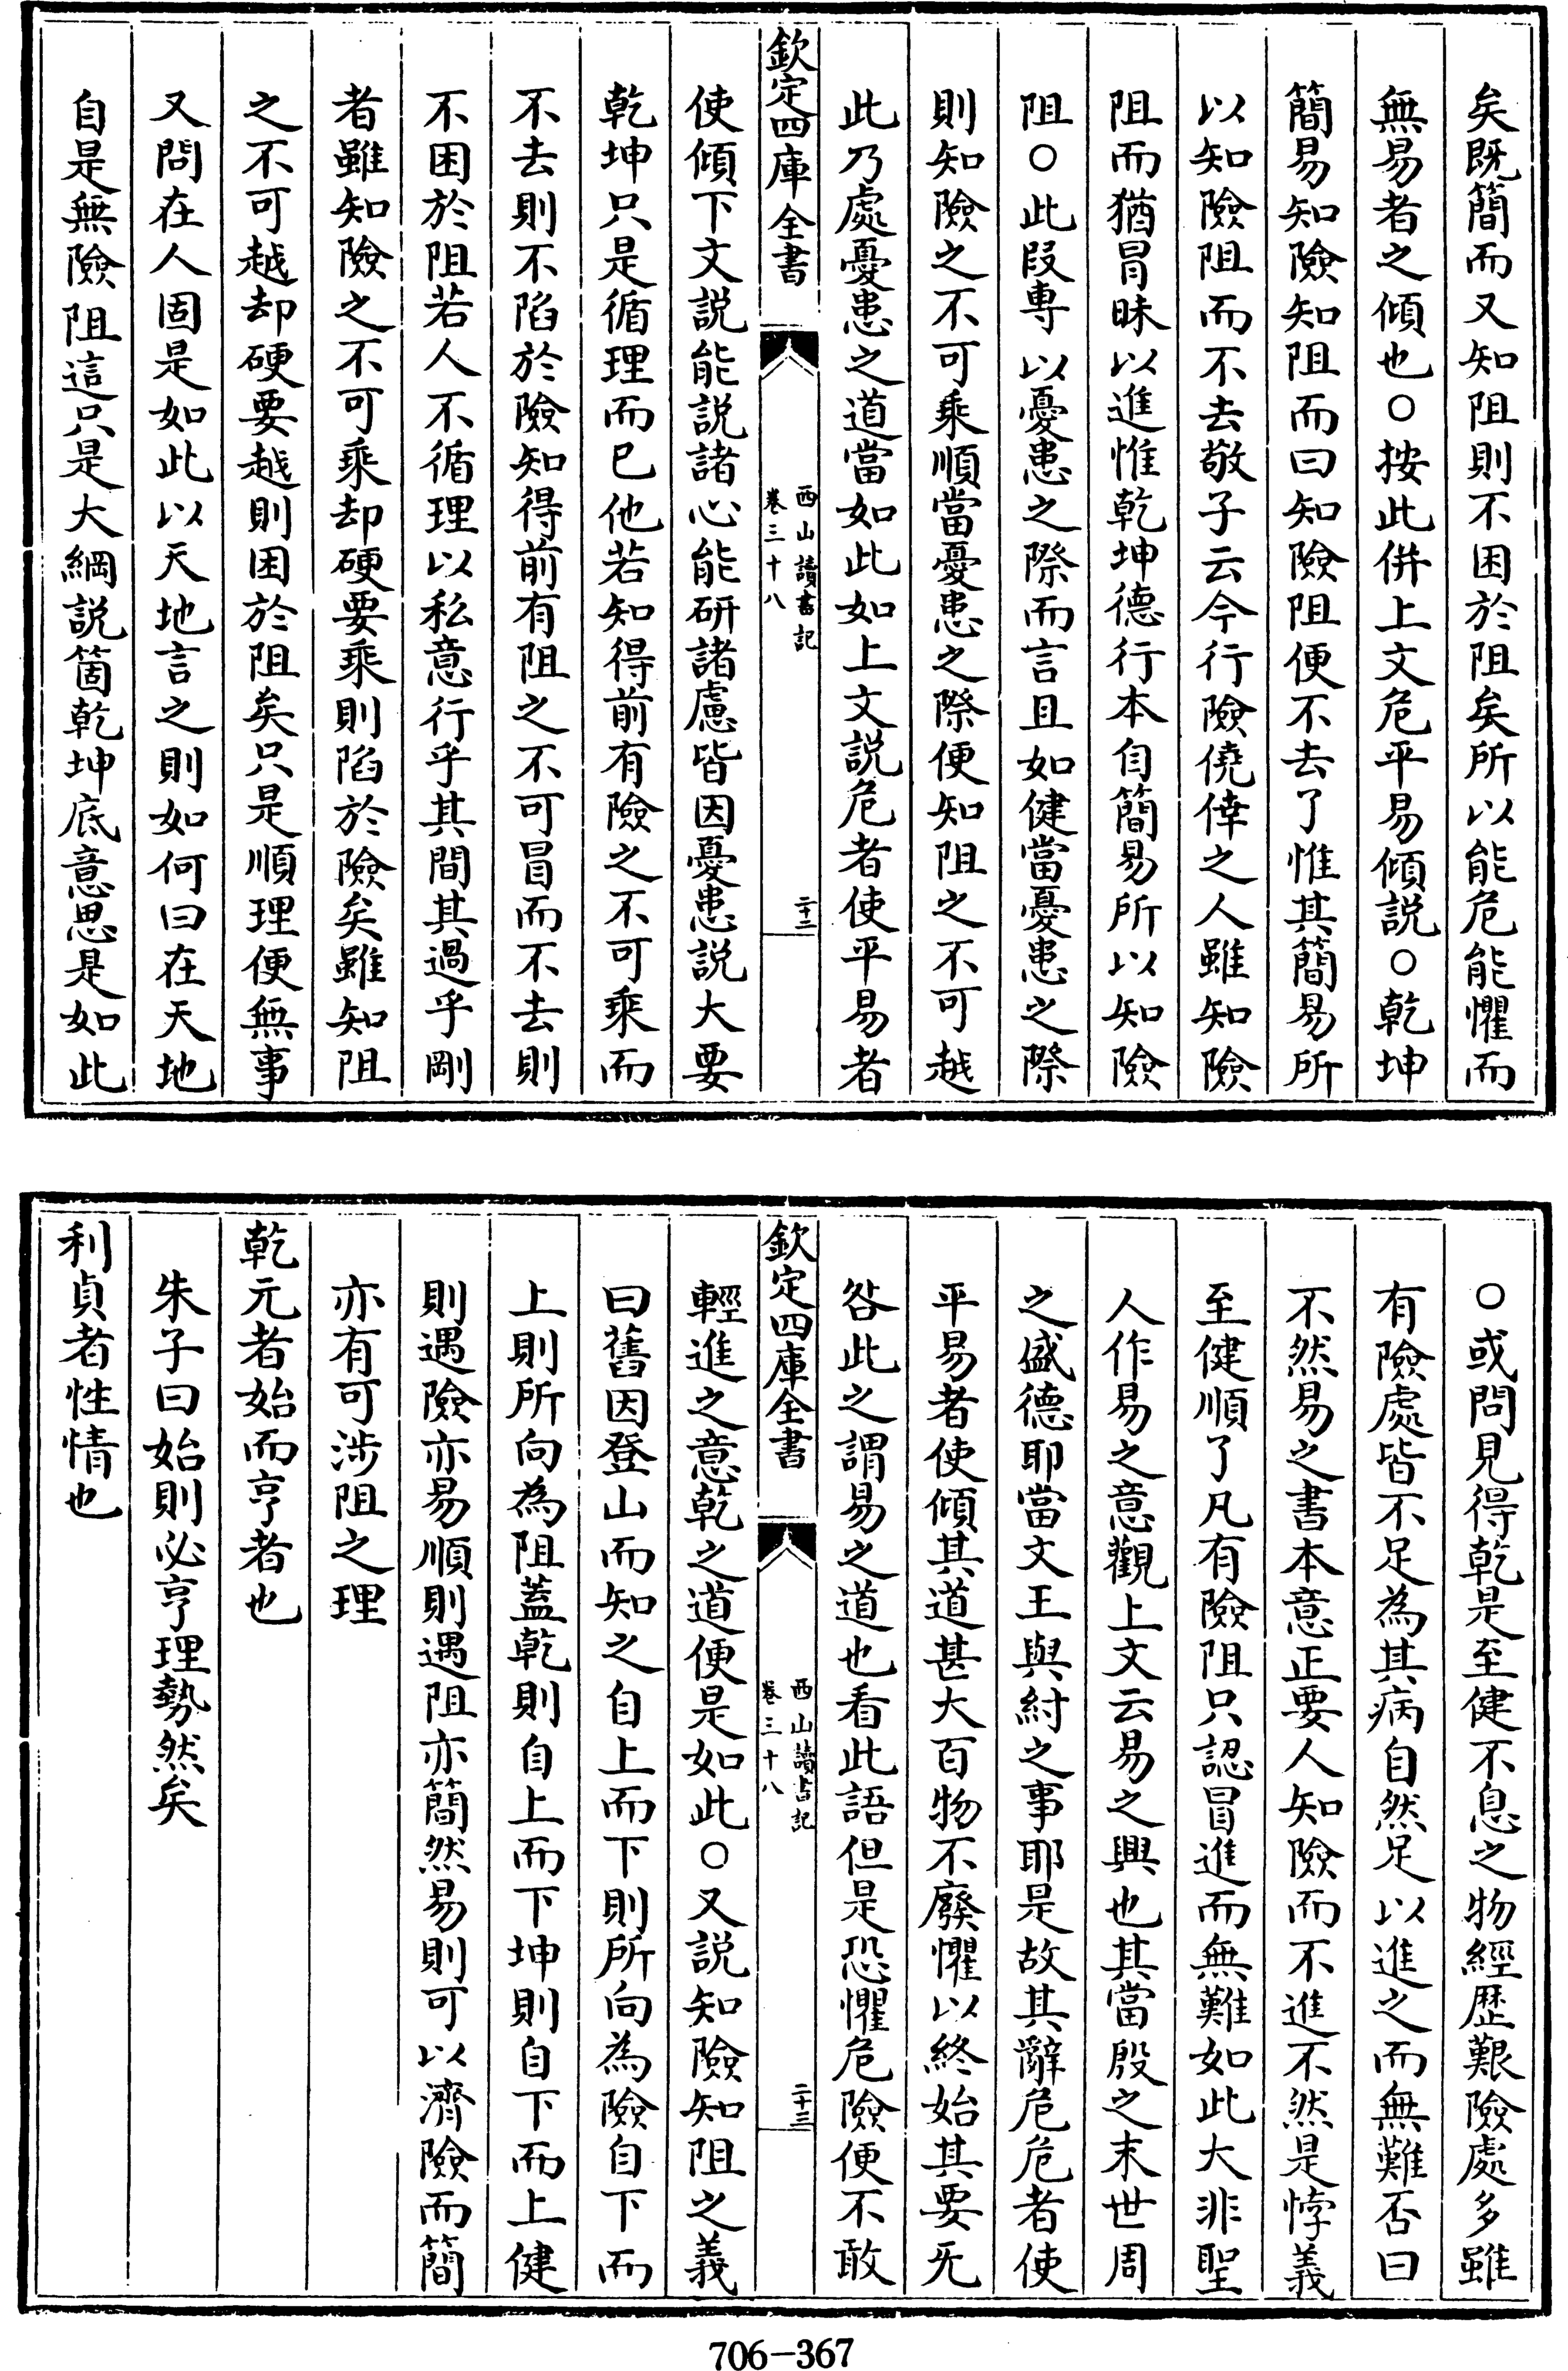 矣既簡而又知阻則不困於阻矣所以能危能懼而
無易者之傾也○按此併上文危平易傾説○乾坤
簡易知險知阻而曰知險阻便不去了惟其簡易所
以知險阻而不去敬子云今行險僥倖之人雖知險
阻而猶冒昧以進惟乾坤德行本自簡易所以知險
阻○此段専以憂患之際而言且如健當憂患之際
則知險之不可乘順當憂患之際便知阻之不可越
此乃處憂患之道當如此如上文説危者使平易者
欽定四庫全書
西山讀書記
卷三十八
二十二
使傾下文説能説諸心能研諸慮皆因憂患説大要
乾坤只是循理而已他若知得前有險之不可乘而
不去則不陷於險知得前有阻之不可冒而不去則
不困於阻若人不循理以私意行乎其間其過乎剛
者雖知險之不可乘却硬要乘則陷於險矣雖知阻
之不可越却硬要越則困於阻矣只是順理便無事
又問在人固是如此以天地言之則如何曰在天地
自是無險阻這只是大綱説箇乾坤底意思是如此
○或問見得乾是至健不息之物經歴艱險處多雖
有險處皆不足為其病自然足以進之而無難否曰
不然易之書本意正要人知險而不進不然是悖義
至健順了凡有險阻只認冒進而無難如此大非聖
人作易之意觀上文云易之興也其當殷之末世周
之盛德耶當文王與紂之事耶是故其辭危危者使
平易者使傾其道甚大百物不廢懼以終始其要无
咎此之謂易之道也看此語但是恐懼危險便不敢
欽定四庫全書
西山讀書記
卷三十八
二十三
輕進之意乾之道便是如此○又説知險知阻之義
曰舊因登山而知之自上而下則所向為險自下而
上則所向為阻蓋乾則自上而下坤則自下而上健
則遇險亦易順則遇阻亦簡然易則可以濟險而簡
亦有可涉阻之理
乾元者始而亨者也
朱子曰始則必亨理勢然矣
利貞者性情也
706-367